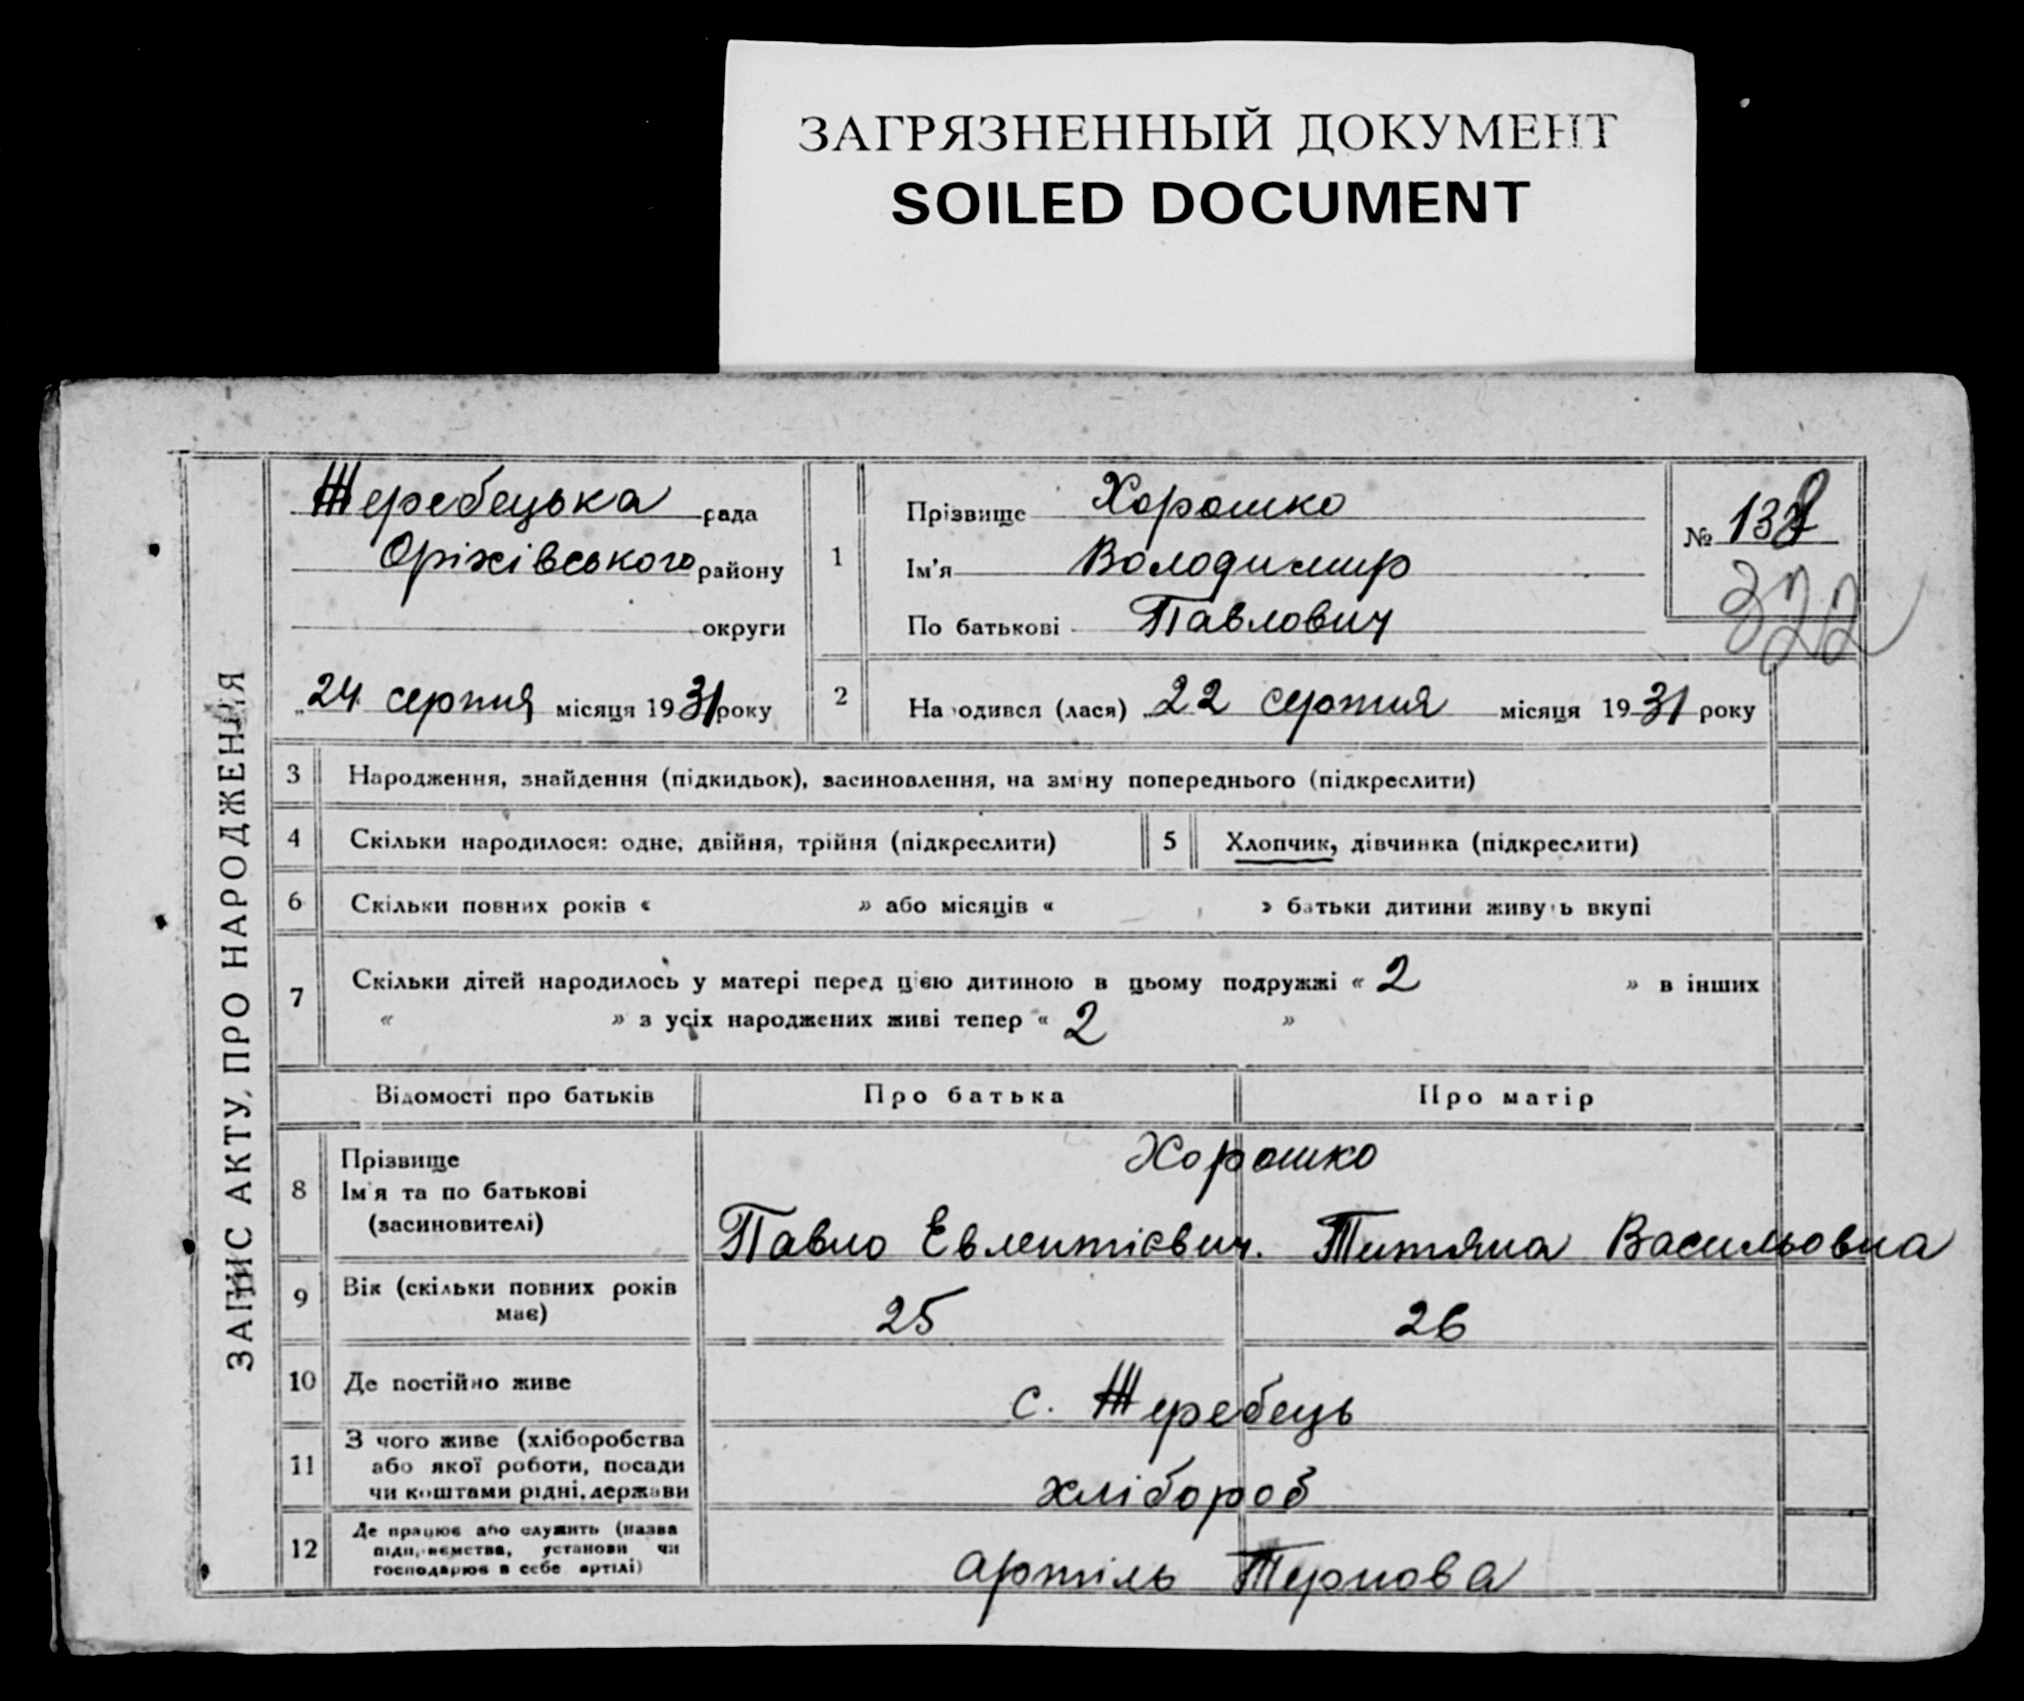 ЗАГРЯЗНЕННЫЙ ДОКУМЕНТ
SOILED DOCUMENT
ЗАПИС АКТУ, ПРО НАРОДЖЕННЯ
Жеребецька рада
Оріхівського району
округи
„24 серпня місяця 1931 року
1
Прізвище Хорошко
Ім'я Володимир
По батькові Павлович
№ 138
322
2 Народився (лася) „22 серпня місяця 1931 року
3 Народження, знайдення (підкидьок), засиновлення, на зміну попереднього (підкреслити)
4 Скільки народилося: одне, двійня, трійня (підкреслити) 5 Хлопчик, дівчинка (підкреслити)
6 Скільки повних років « » або місяців « » батьки дитини живуть вкупі
7 Скільки дітей народилось у матері перед цією дитиною в цьому подружжі « 2 » в інших
« » з усіх народжених живі тепер « 2 »
Відомості про батьків Про батька Про матір
8 Прізвище Хорошко
Ім'я та по батькові
(засиновителі) Павло Евлентієвич. Титяна Васильовна
9 Вік (скільки повних років
має) 25 26
10 Де постійно живе с. Жеребець
11 З чого живе (хліборобства
або якої роботи, посади
чи коштами рідні, держави хлібороб
12 Де працює або служить (назва
підприємства, установи чи
господарює в себе артілі) артіль Тернова